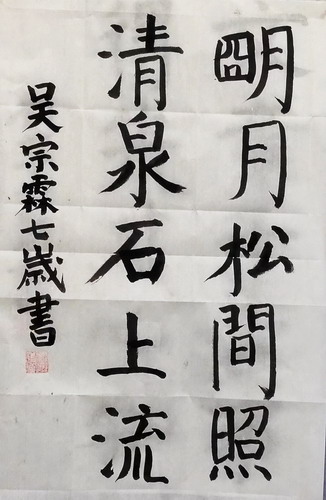 明月松間照
清泉石上流
吴宗霖七歲書